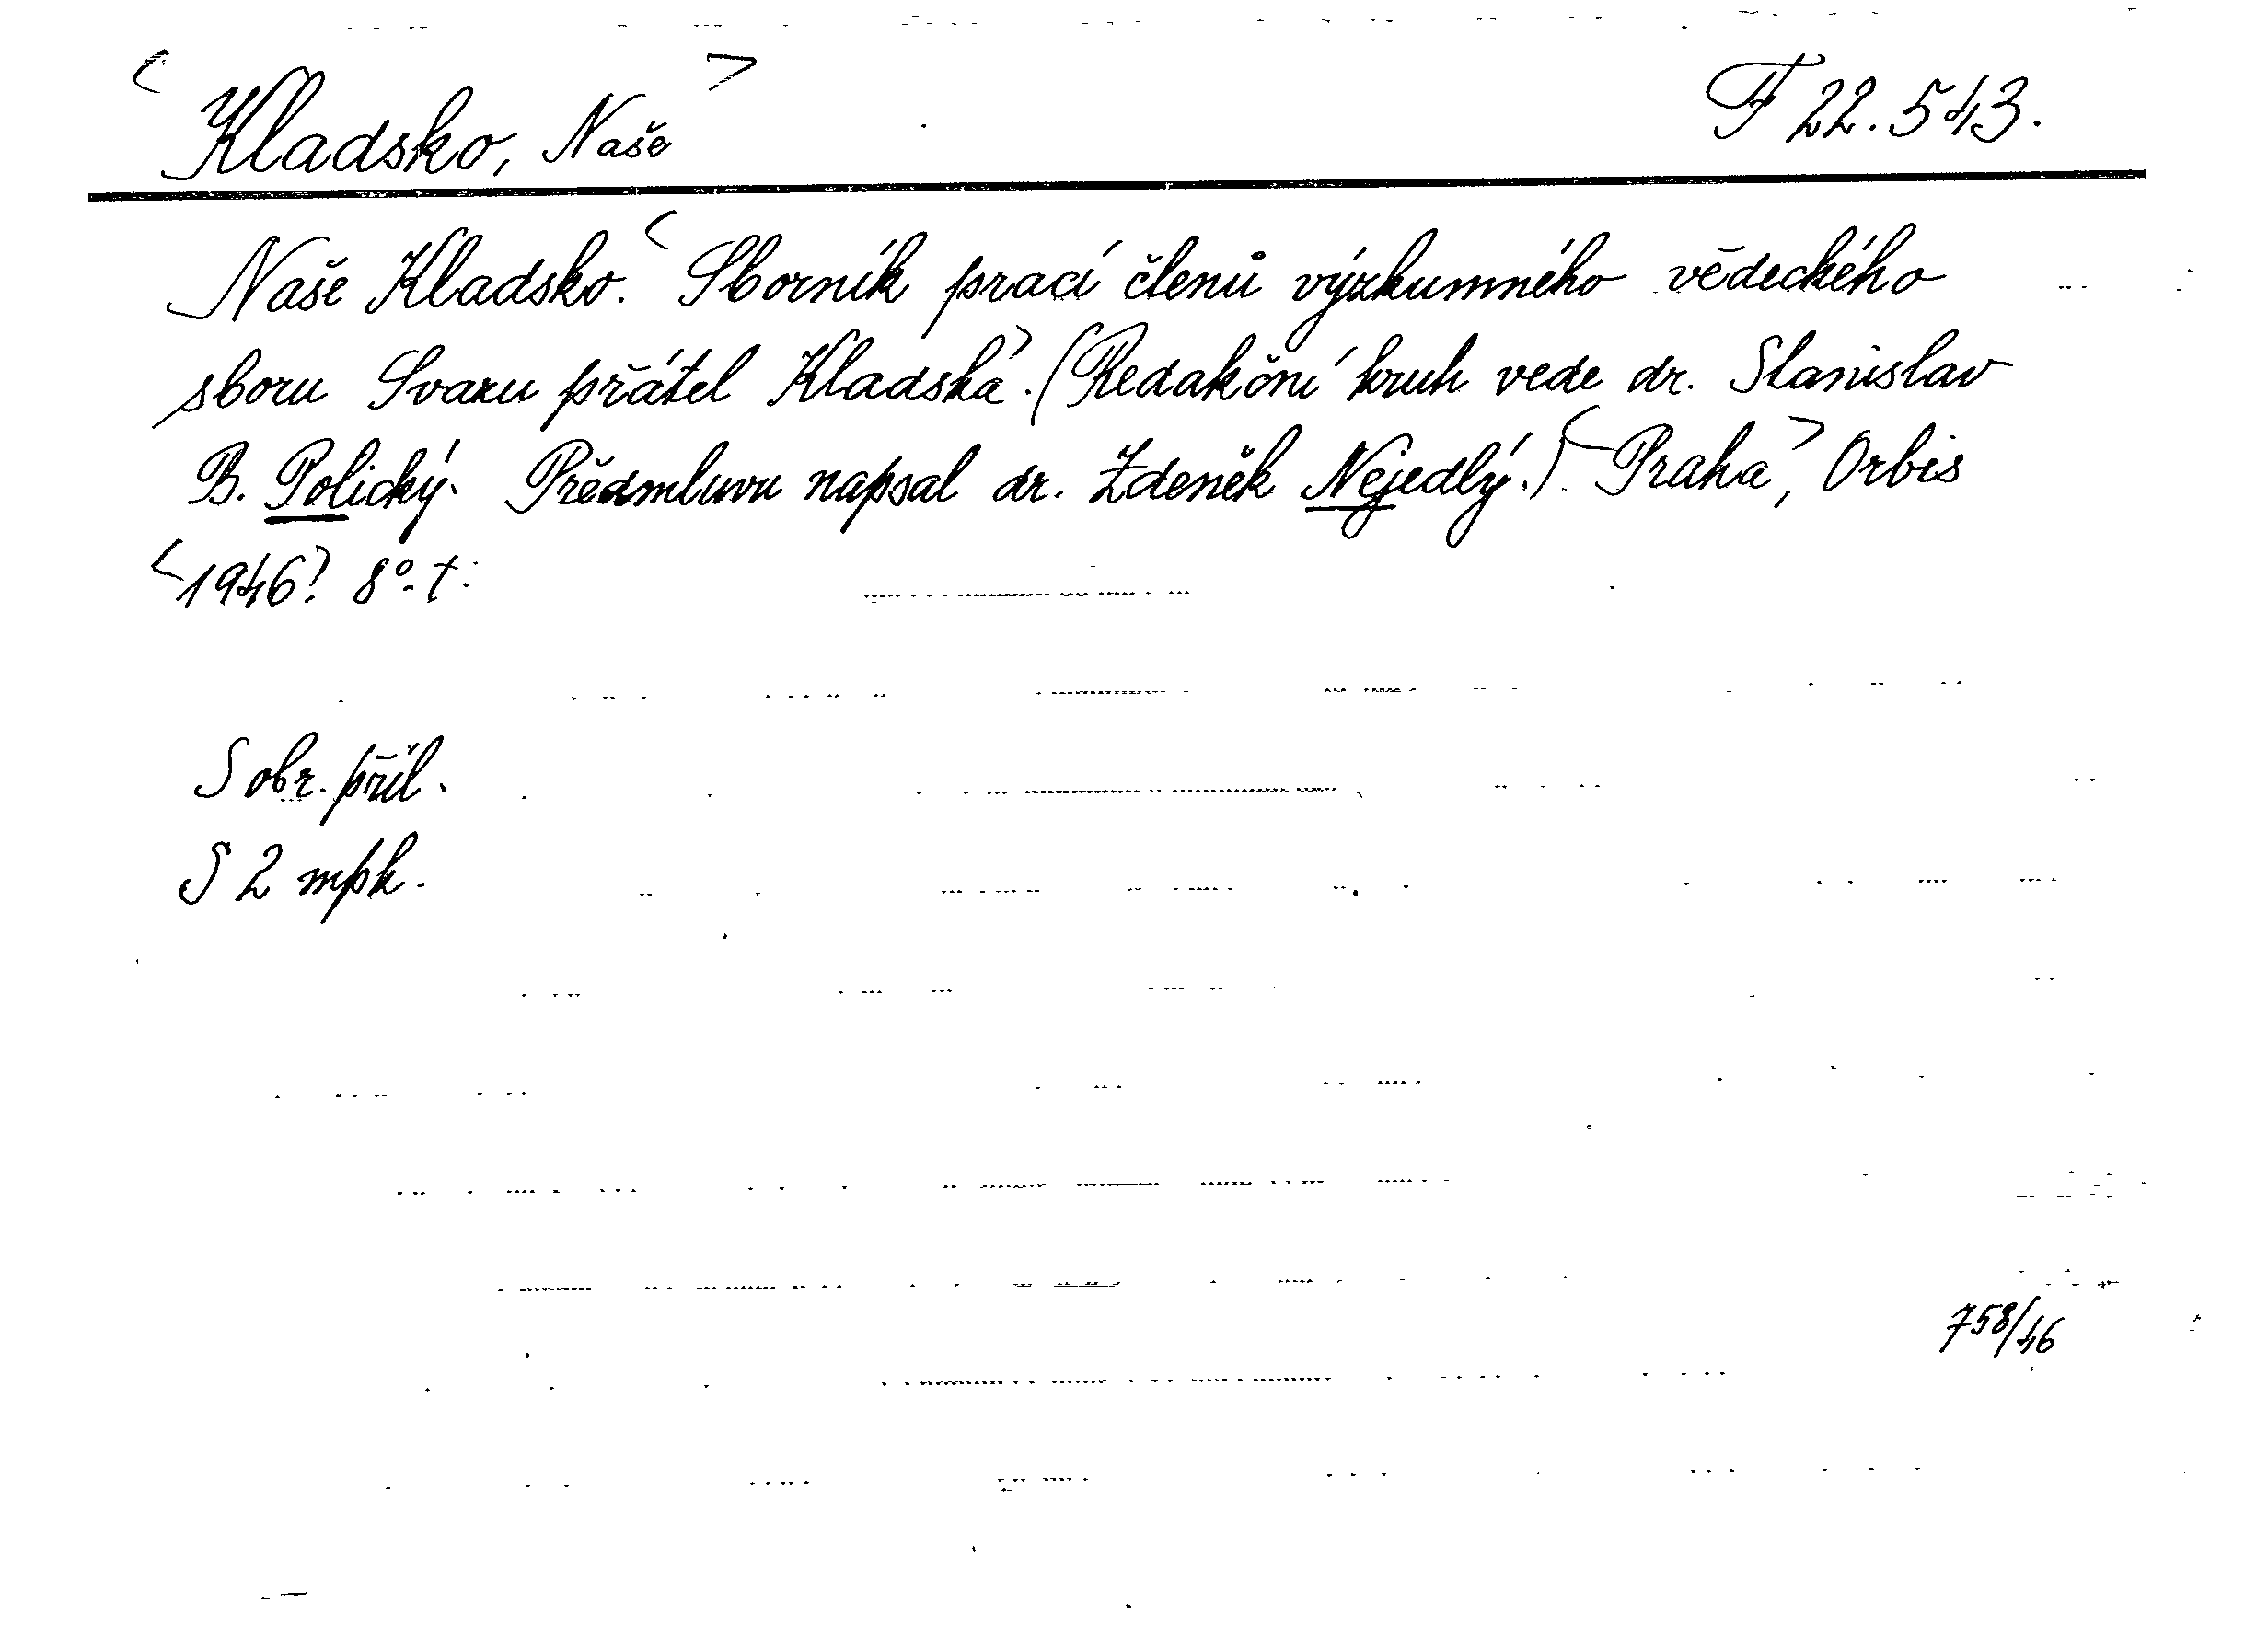 <Kladsko, Naše> F 22.543.
Naše Kladsko. <Sborník prací členů výzkumného vědeckého
sboru Svazu přátel Kladska>. (Redakční kruh vede dr. Stanislav
B. Polický. Předmluvu napsal dr. Zdeněk Nejedlý.) <Praha>, Orbis
<1946>. 8°. t.
S obr. příl.
S 2 mpk.
758/46